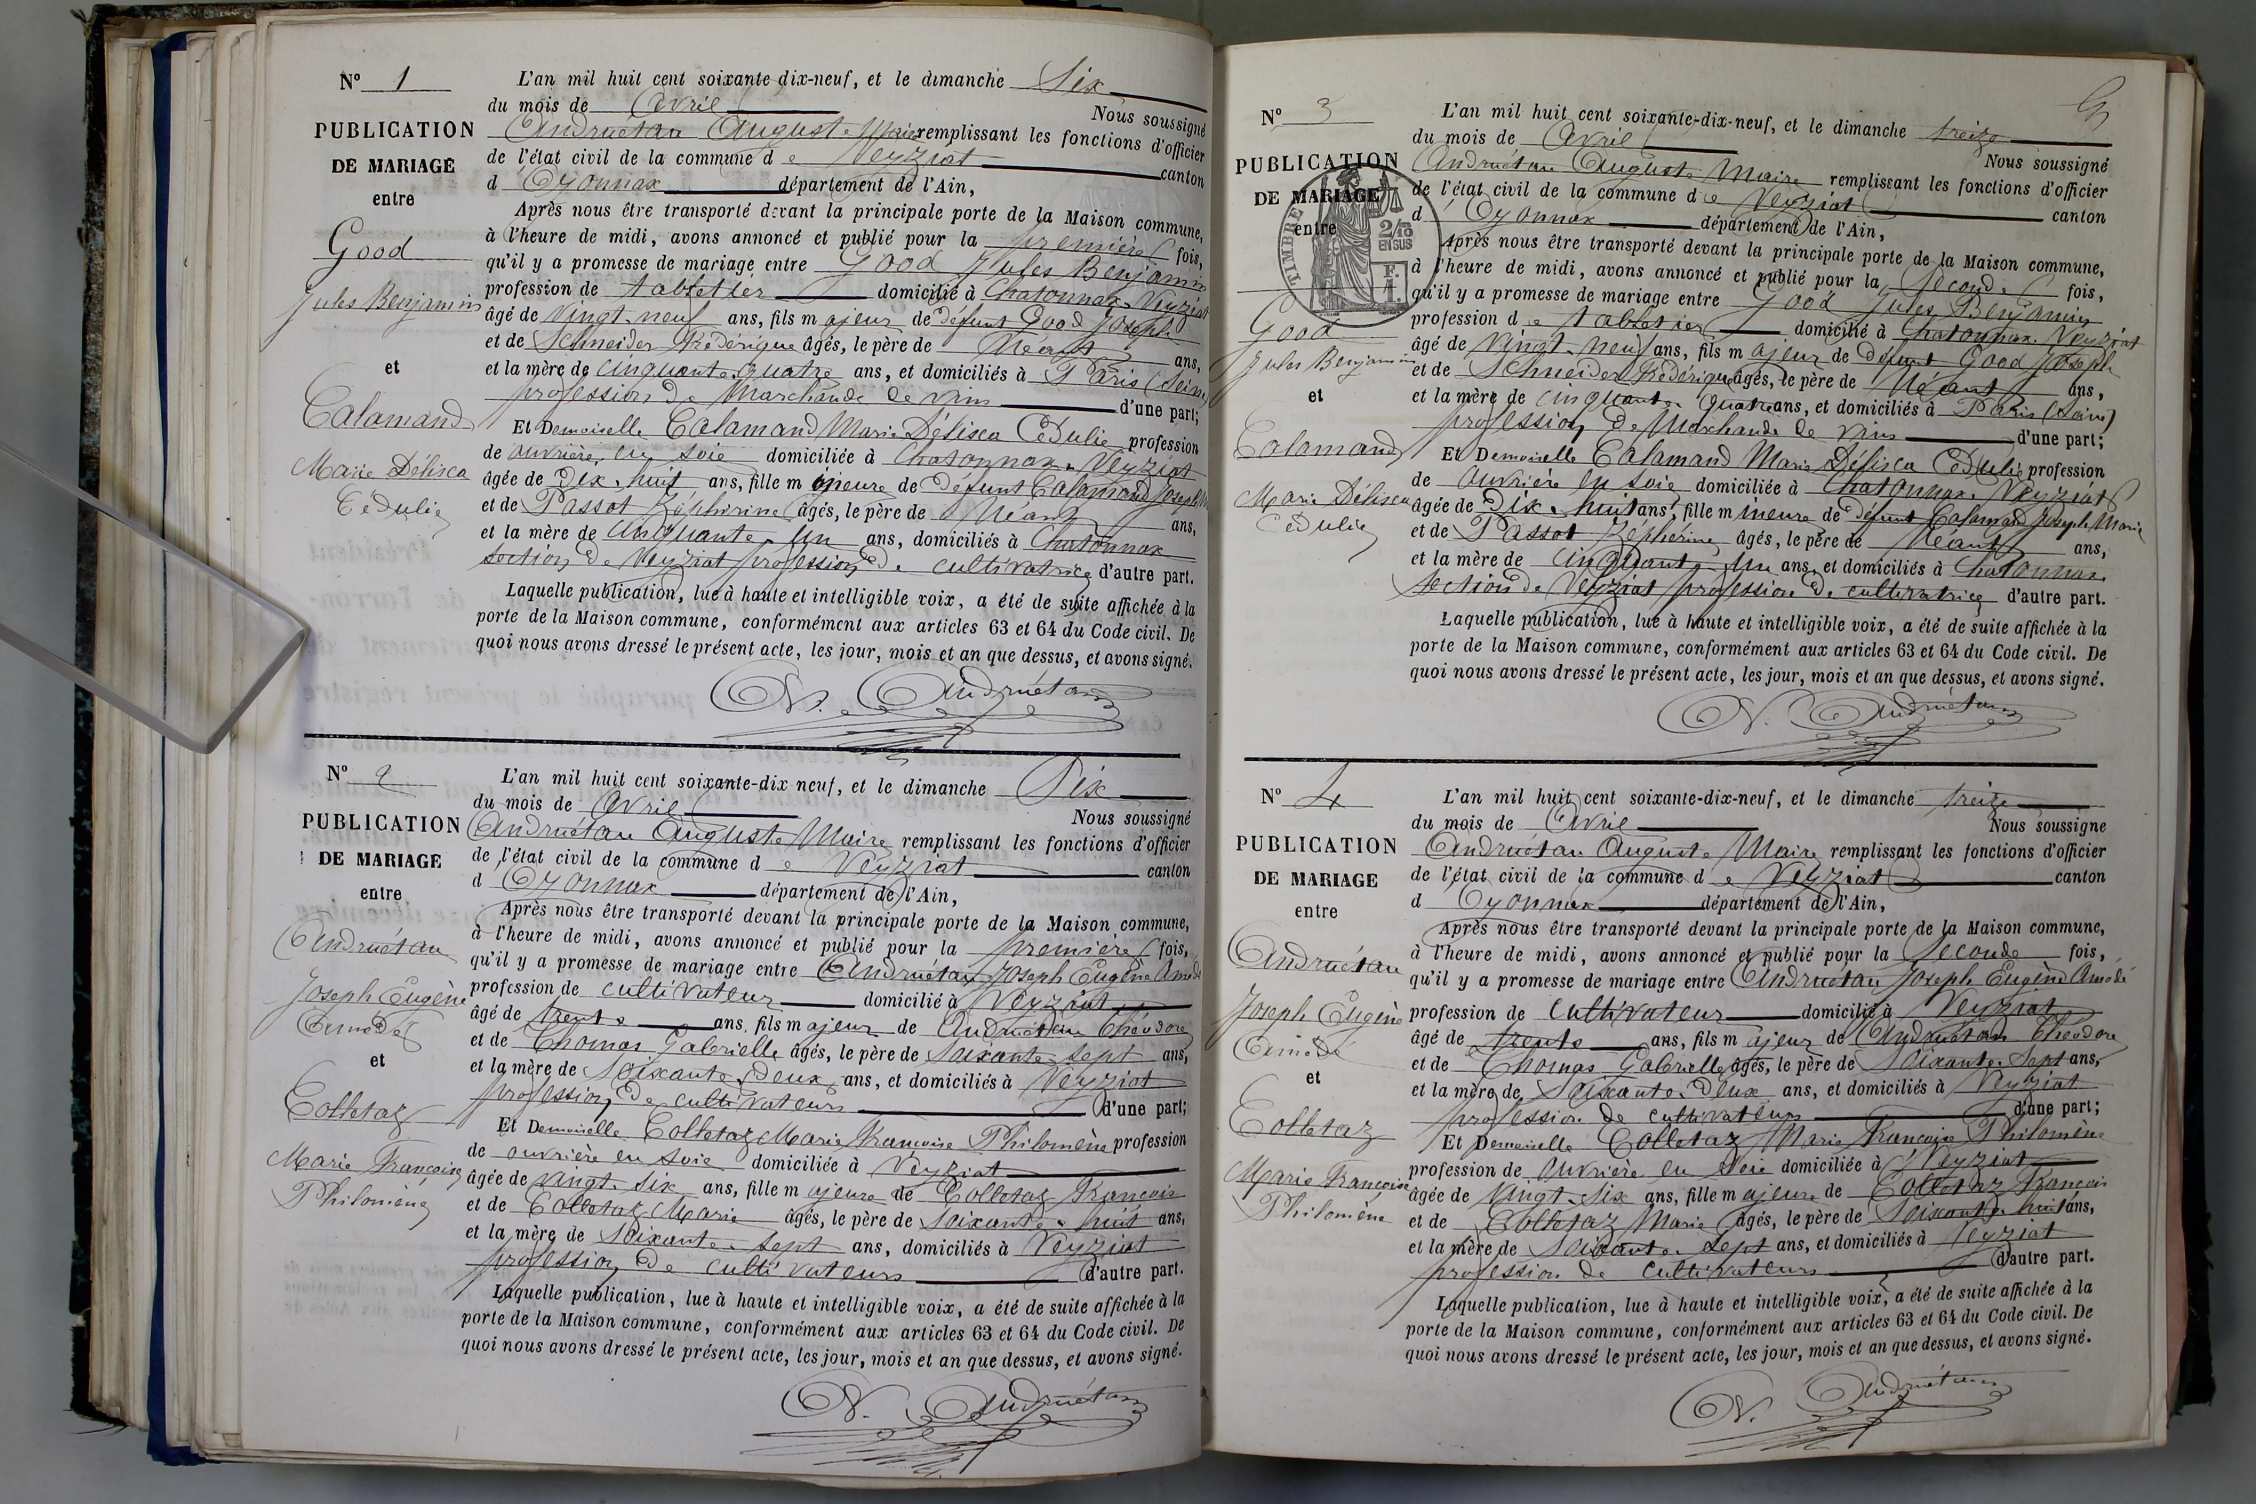 N° 1
PUBLICATION
DE MARIAGE
entre
Good
Jules Benjamin
et
Calamand
Marie Délisca
Cédulie
L'an mil huit cent soixante dix-neuf, et le dimanche Six
du mois de Avril Nous soussigné
Andruétan Auguste Maire remplissant les fonctions d'officier
de l'état civil de la commune de Veyziat canton
d'Oyonnax département de l'Ain,
Après nous être transporté devant la principale porte de la Maison commune,
à l'heure de midi, avons annoncé et publié pour la première fois,
qu'il y a promesse de mariage entre Good Jules Benjamin
profession de tabletier domicilié à Chatonnax-Veyziat
âgé de vingt-neuf ans, fils majeur de défunt Good Joseph
et de Schneider Frédérique âgés, le père de Néant ans,
et la mère de cinquante-quatre ans, et domiciliés à Paris (Seine)
profession de Marchande de vins d'une part;
Et Demoiselle Calamand Marie Délisca Cédulie profession
de ouvrière en soie domiciliée à Chatonnax-Veyziat
âgée de Dix-huit ans, fille mineure de défunt Calamand Joseph
et de Passot Zéphirine âgés, le père de Néant ans,
et la mère de cinquante-un ans, domiciliés à Chatonnax
section de Veyziat profession de cultivatrice d'autre part.
Laquelle publication, lue à haute et intelligible voix, a été de suite affichée à la
porte de la Maison commune, conformément aux articles 63 et 64 du Code civil. De
quoi nous avons dressé le présent acte, les jour, mois et an que dessus, et avons signé.
Andruétan
N° 2
PUBLICATION
DE MARIAGE
entre
Andruétan
Joseph Eugène
Amédé
et
Colletaz
Marie Françoise
Philomène
L'an mil huit cent soixante-dix neuf, et le dimanche Six
du mois de Avril Nous soussigné
Andruétan Auguste Maire remplissant les fonctions d'officier
de l'état civil de la commune de Veyziat canton
d'Oyonnax département de l'Ain,
Après nous être transporté devant la principale porte de la Maison commune,
à l'heure de midi, avons annoncé et publié pour la première fois,
qu'il y a promesse de mariage entre Andruétan Joseph Eugène Amédé
profession de cultivateur domicilié à Veyziat
âgé de trente ans, fils majeur de Andruétan Théodore
et de Thomas Gabrielle âgés, le père de soixante-sept ans,
et la mère de soixante-deux ans, et domiciliés à Veyziat
profession de cultivateurs d'une part;
Et Demoiselle Colletaz Marie Françoise Philomène profession
de ouvrière en soie domiciliée à Veyziat
âgée de vingt-six ans, fille majeure de Colletaz François
et de Colletaz Marie âgés, le père de soixante-huit ans,
et la mère de soixante-sept ans, domiciliés à Veyziat
profession de cultivateurs d'autre part.
Laquelle publication, lue à haute et intelligible voix, a été de suite affichée à la
porte de la Maison commune, conformément aux articles 63 et 64 du Code civil. De
quoi nous avons dressé le présent acte, les jour, mois et an que dessus, et avons signé.
Andruétan
N° 3
PUBLICATION
DE MARIAGE
entre
TIMBRE
2/10
EN SUS
Good
Jules Benjamin
et
Calamand
Marie Délisca
Cédulie
L'an mil huit cent soixante-dix-neuf, et le dimanche treize
du mois de Avril Nous soussigné
Andruétan Auguste Maire remplissant les fonctions d'officier
de l'état civil de la commune de Veyziat canton
d'Oyonnax département de l'Ain,
Après nous être transporté devant la principale porte de la Maison commune,
à l'heure de midi, avons annoncé et publié pour la seconde fois,
qu'il y a promesse de mariage entre Good Jules Benjamin
profession de tabletier domicilié à Chatonnax-Veyziat
âgé de vingt-neuf ans, fils majeur de défunt Good Joseph
et de Schneider Frédérique âgés, le père de Néant ans,
et la mère de cinquante-quatre ans, et domiciliés à Paris (Seine)
profession de Marchande de vins d'une part;
Et Demoiselle Calamand Marie Délisca Cédulie profession
de ouvrière en soie domiciliée à Chatonnax-Veyziat
âgée de Dix-huit ans, fille mineure de défunt Calamand Joseph Marie
et de Passot Zéphérine âgés, le père de Néant ans,
et la mère de cinquante-un ans, et domiciliés à Chatonnax
section de Veyziat profession de cultivatrice d'autre part.
Laquelle publication, lue à haute et intelligible voix, a été de suite affichée à la
porte de la Maison commune, conformément aux articles 63 et 64 du Code civil. De
quoi nous avons dressé le présent acte, les jour, mois et an que dessus, et avons signé.
Andruétan
N° 4
PUBLICATION
DE MARIAGE
entre
Andruétan
Joseph Eugène
Amédé
et
Colletaz
Marie Françoise
Philomène
L'an mil huit cent soixante-dix-neuf, et le dimanche treize
du mois de Avril Nous soussigné
Andruétan Auguste Maire remplissant les fonctions d'officier
de l'état civil de la commune de Veyziat canton
d Oyonnax département de l'Ain,
Après nous être transporté devant la principale porte de la Maison commune,
à l'heure de midi, avons annoncé et publié pour la seconde fois,
qu'il y a promesse de mariage entre Andruétan Joseph Eugène Amédé
profession de cultivateur domicilié à Veyziat
âgé de trente ans, fils majeur de Andruétan Théodore
et de Thomas Gabrielle âgés, le père de soixante-sept ans,
et la mère de soixante-deux ans, et domiciliés à Veyziat
profession de cultivateurs d'une part;
Et Demoiselle Colletaz Marie Françoise Philomène
profession de ouvrière en soie domiciliée à Veyziat
âgée de vingt-six ans, fille majeure de Colletaz François
et de Colletaz Marie âgés, le père de soixante-huit ans,
et la mère de soixante-sept ans, et domiciliés à Veyziat
profession de cultivateurs d'autre part.
Laquelle publication, lue à haute et intelligible voix, a été de suite affichée à la
porte de la Maison commune, conformément aux articles 63 et 64 du Code civil. De
quoi nous avons dressé le présent acte, les jour, mois et an que dessus, et avons signé.
Andruétan